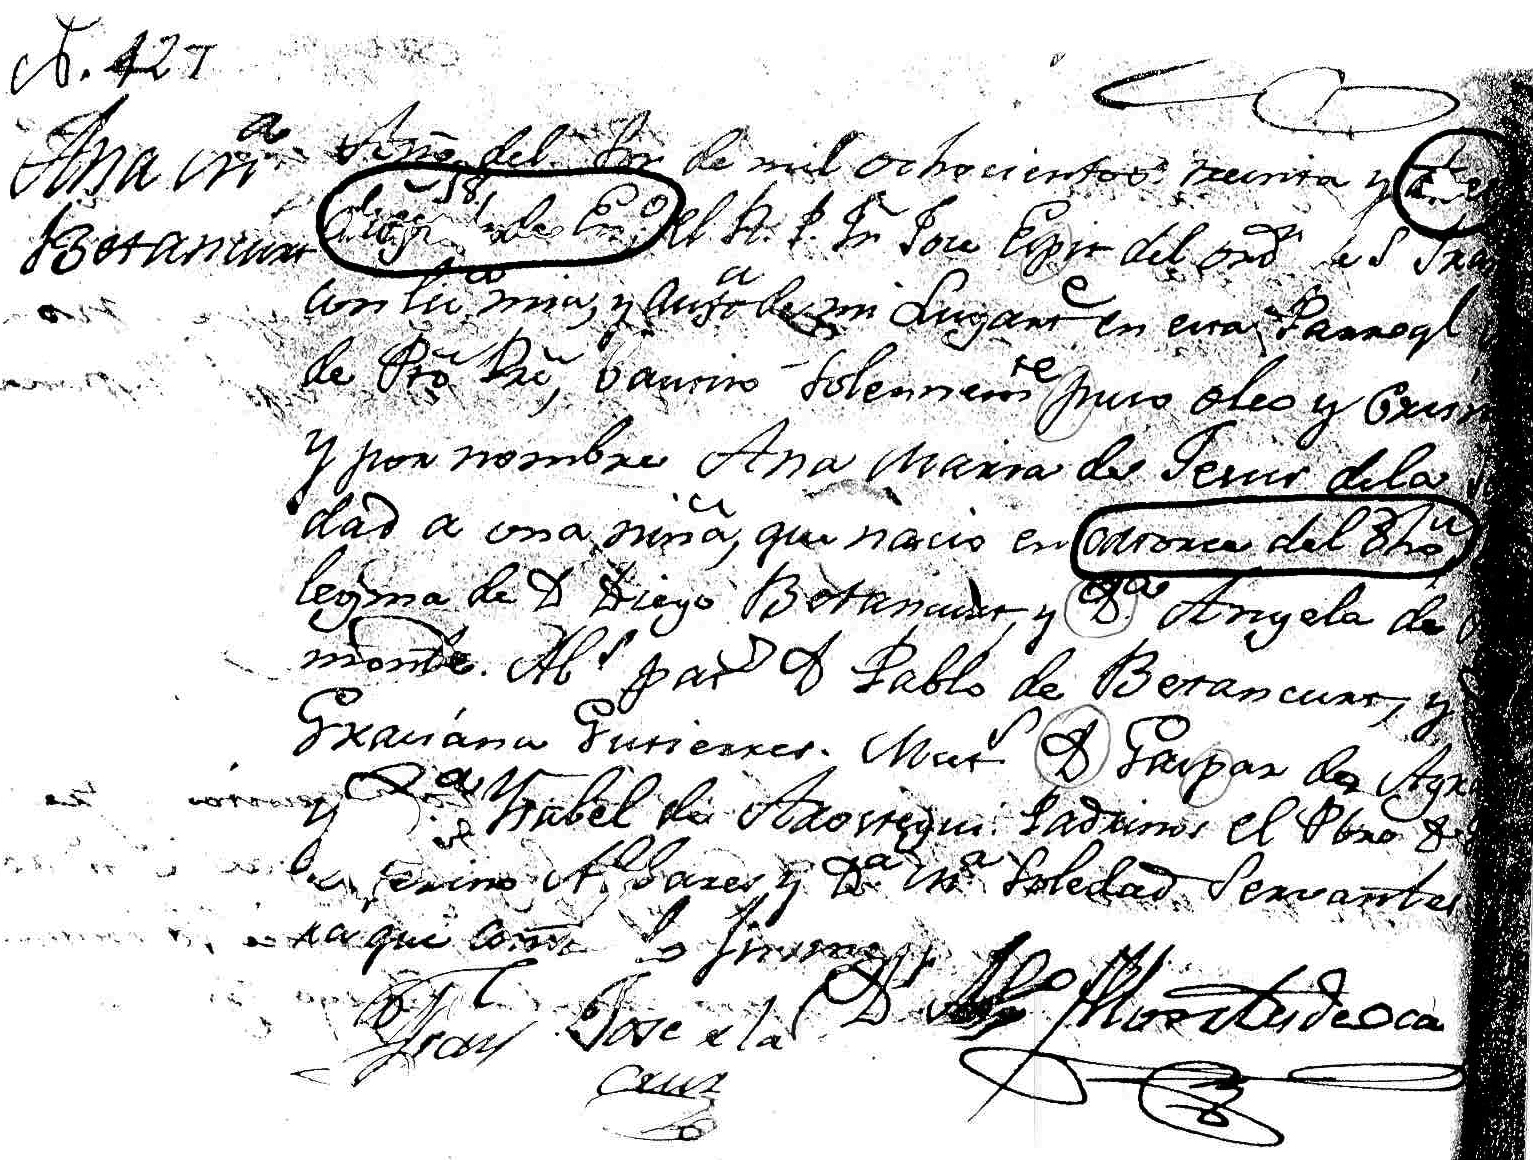 N. 427
Ana M.ª
Betancurt
Año del Sr de mil ochocientos treinta y
de En.o el R. P. Fr Jose Espir del ord.n de S. Fra
con lic.a mia, y auss.a de mi Lugart.e en esta Parroql
de Pto Pre, bautizo Solemnem.te puso oleo y Crism
y por nombre Ana Maria de Jesus de la
dad a una niña, que nacio en catorce del dho
legma de D Diego Betancurt, y D.a Angela de
monte. Ab.s pat.s D Pablo de Betancurt, y
Graciana Gutierres. Mat.s D Gaspar de Agr
y D.a Ysabel de Arostegui. Padrinos el Pbro D
Albares y D.a M.a Soledad Servantes
raqe conste lo firmamos
Fray Jose de la
Cruz
D.r Montesdeoca